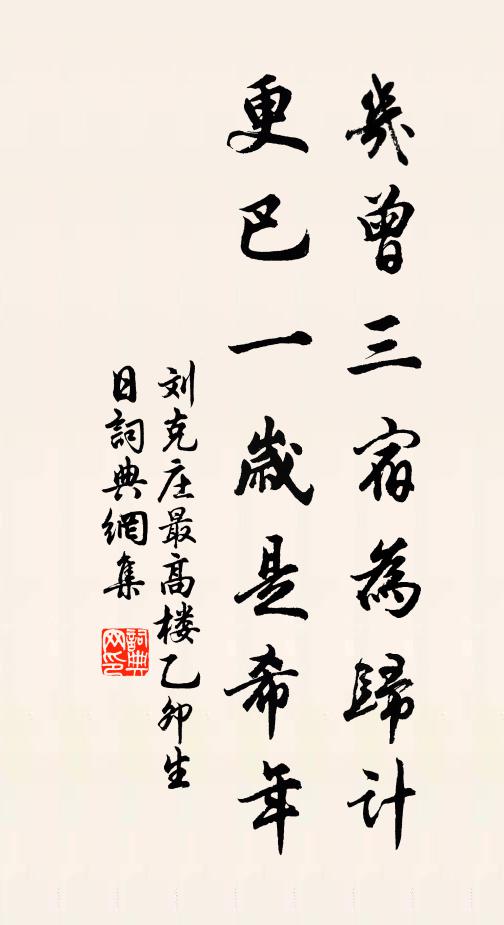 幾曾三宿為歸計
更巳一歲是希年
刘克庄最高楼乙卯生
日詞典網集
詞典
网印